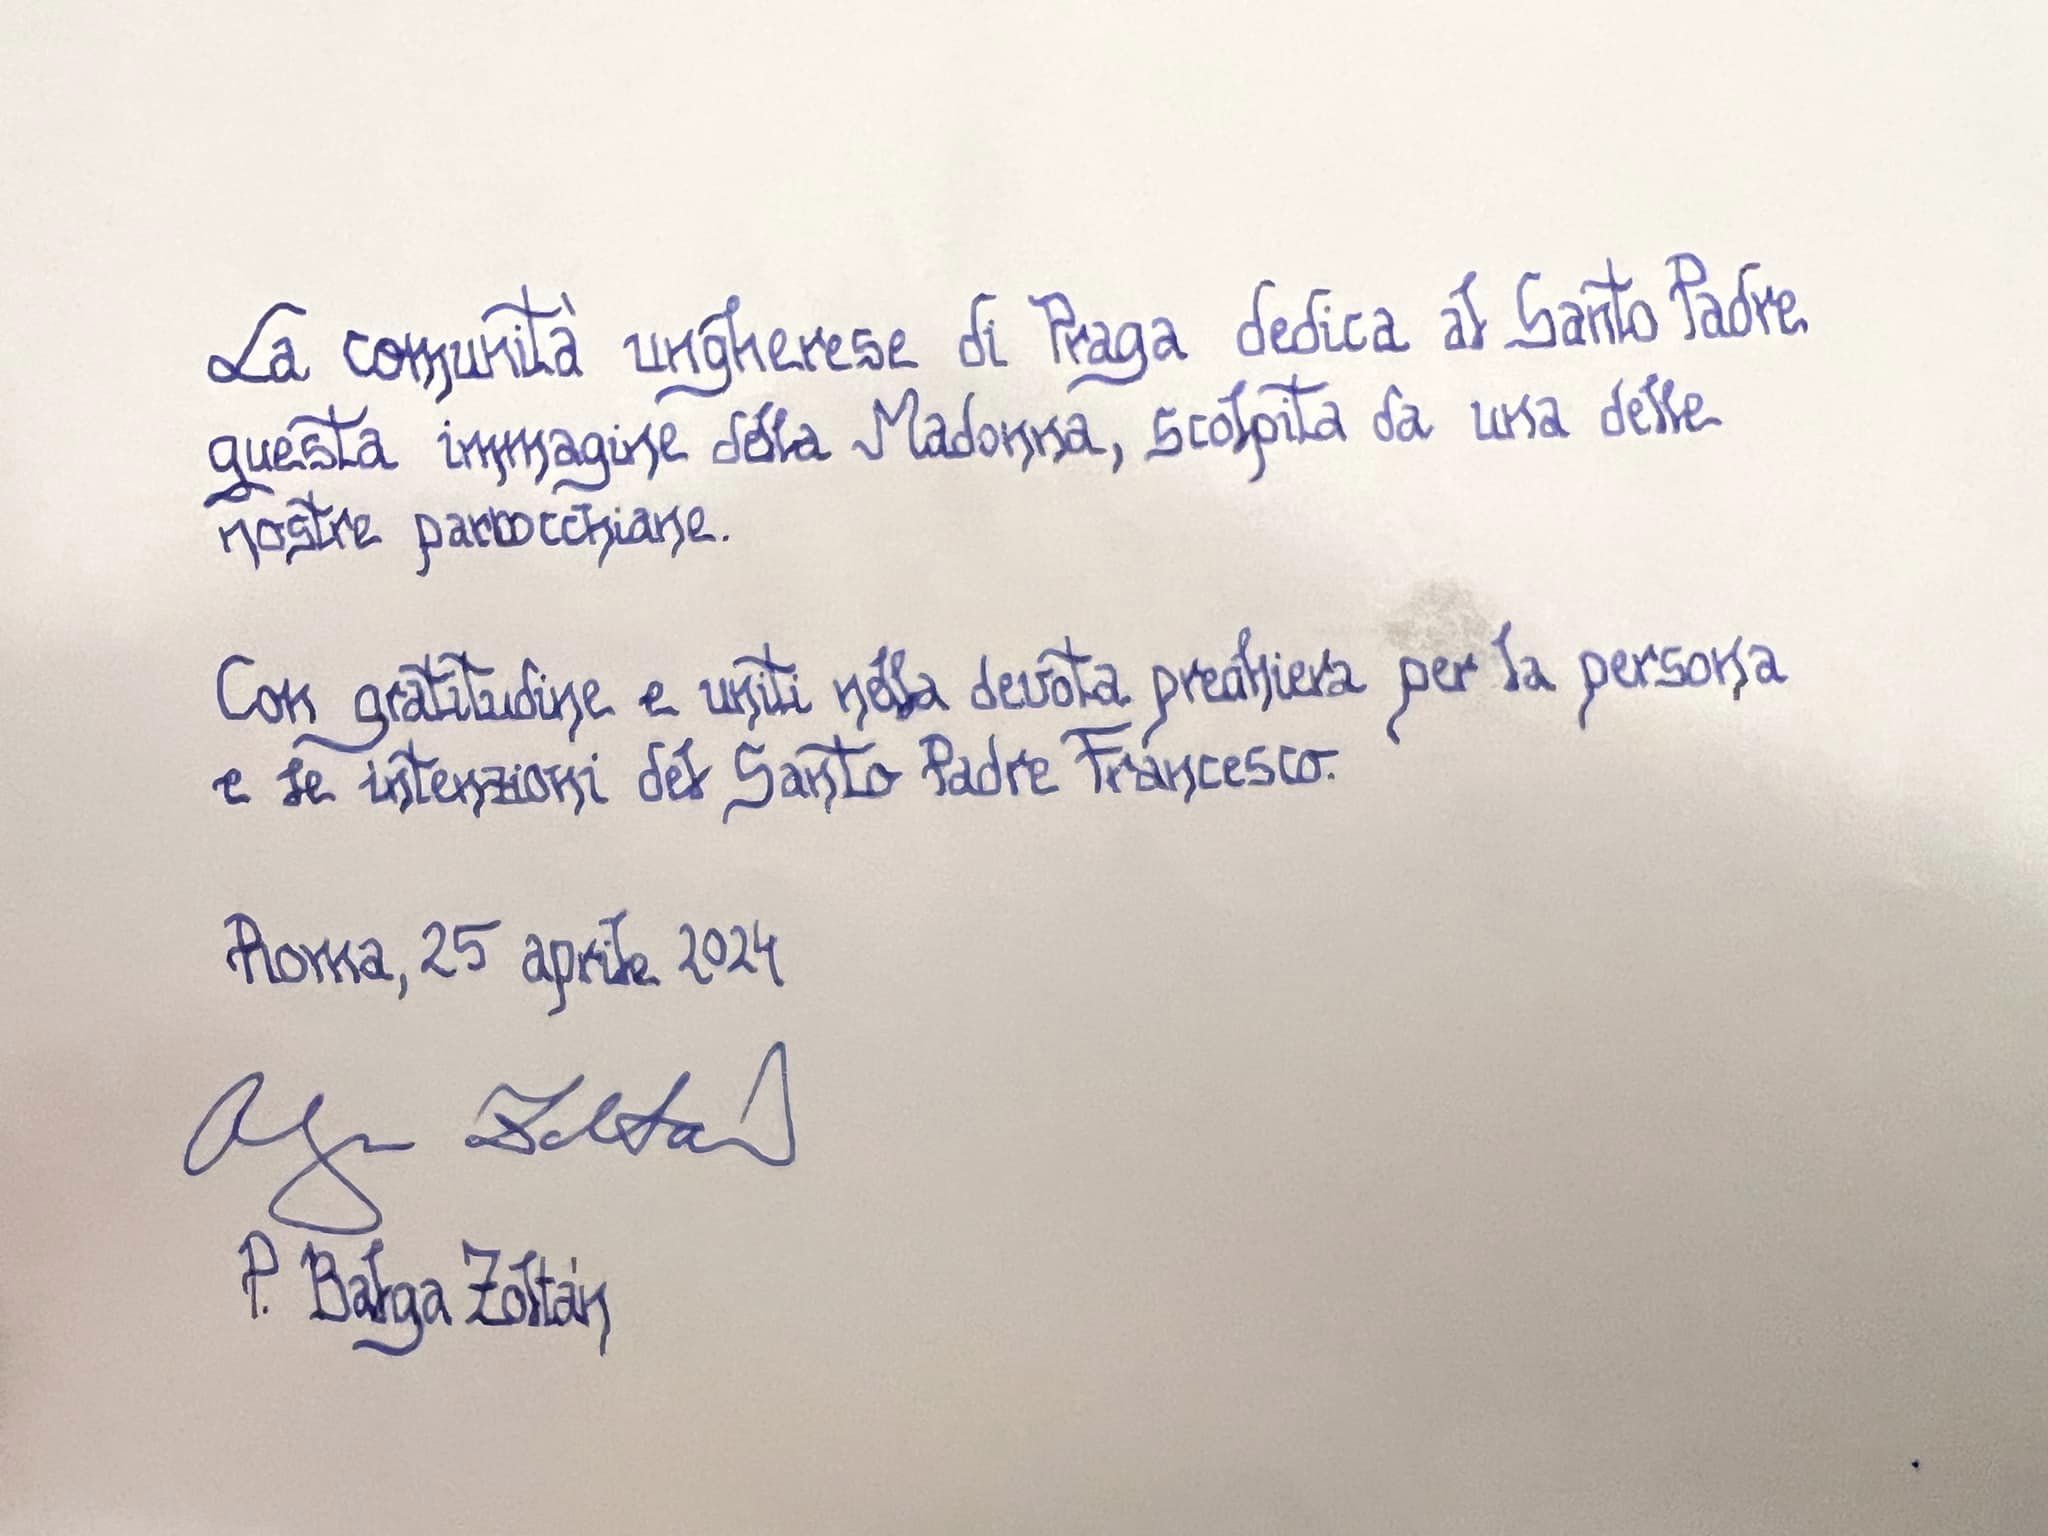 La comunità ungherese di Praga dedica al Santo Padre
questa immagine della Madonna, scolpita da una delle
nostre parrocchiane.
Con gratitudine e uniti nella devota preghiera per la persona
e le intenzioni del Santo Padre Francesco.
Roma, 25 aprile 2024
Zoltán
P. Balga Zoltán